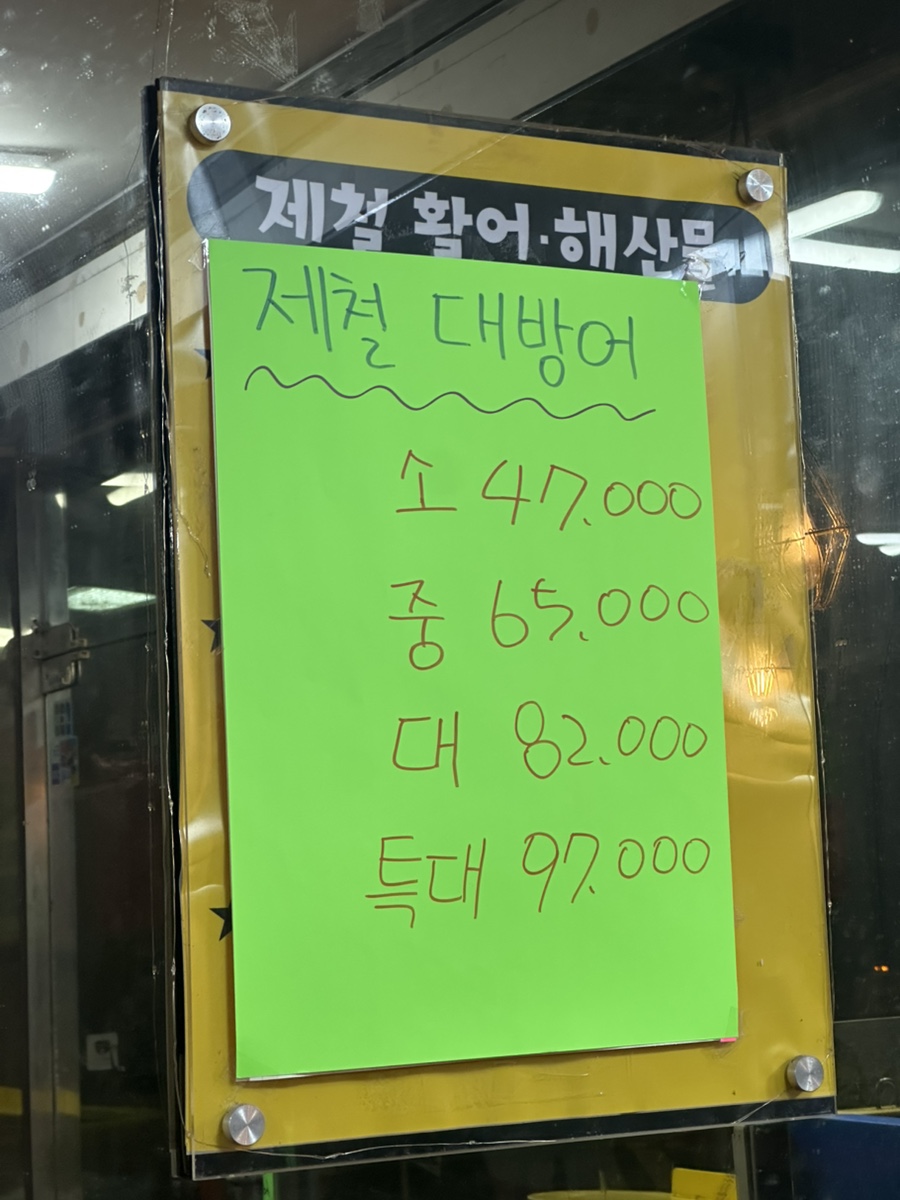 제철 활어·해산물
제철 대방어
소 47.000
중 65.000
대 82.000
특대 97.000